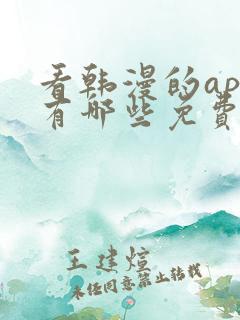 看韩漫的ap
有哪些免费
王建煊
未经同意禁止转载